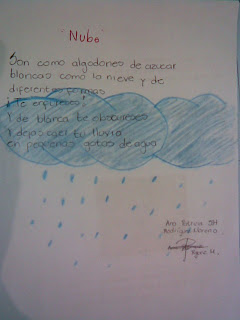 "Nube"
Son como algodones de azucar
blancas como la nieve y de
diferentes formas
¡Te enfureces!
Y de blanca te obscureces
Y dejas caer tu lluvia
en pequeñas gotas de agua
Ana Patricia 5H
Rodríguez Moreno